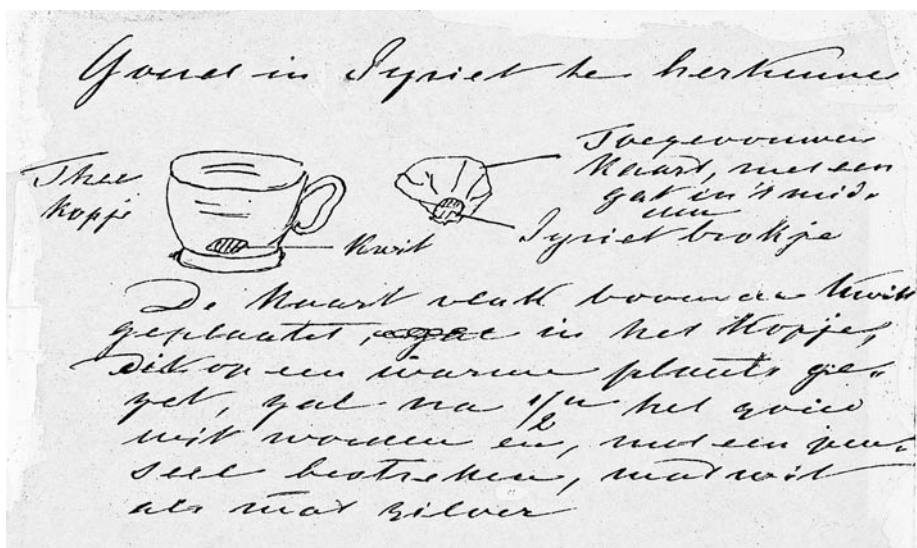 Goud in Pyriet te herkennen
Thee
kopje
kwik
Toegevouwen
kaart, met een
gat in 't mid-
den
Pyriet brokje
De kaart vlak boven de kwik
geplaatst, in het kopje,
Dit op een warme plaats ge-
zet, zal na 1/2 u het goud
wit worden en, met een pen-
seel bestreken, mat wit
als mat zilver